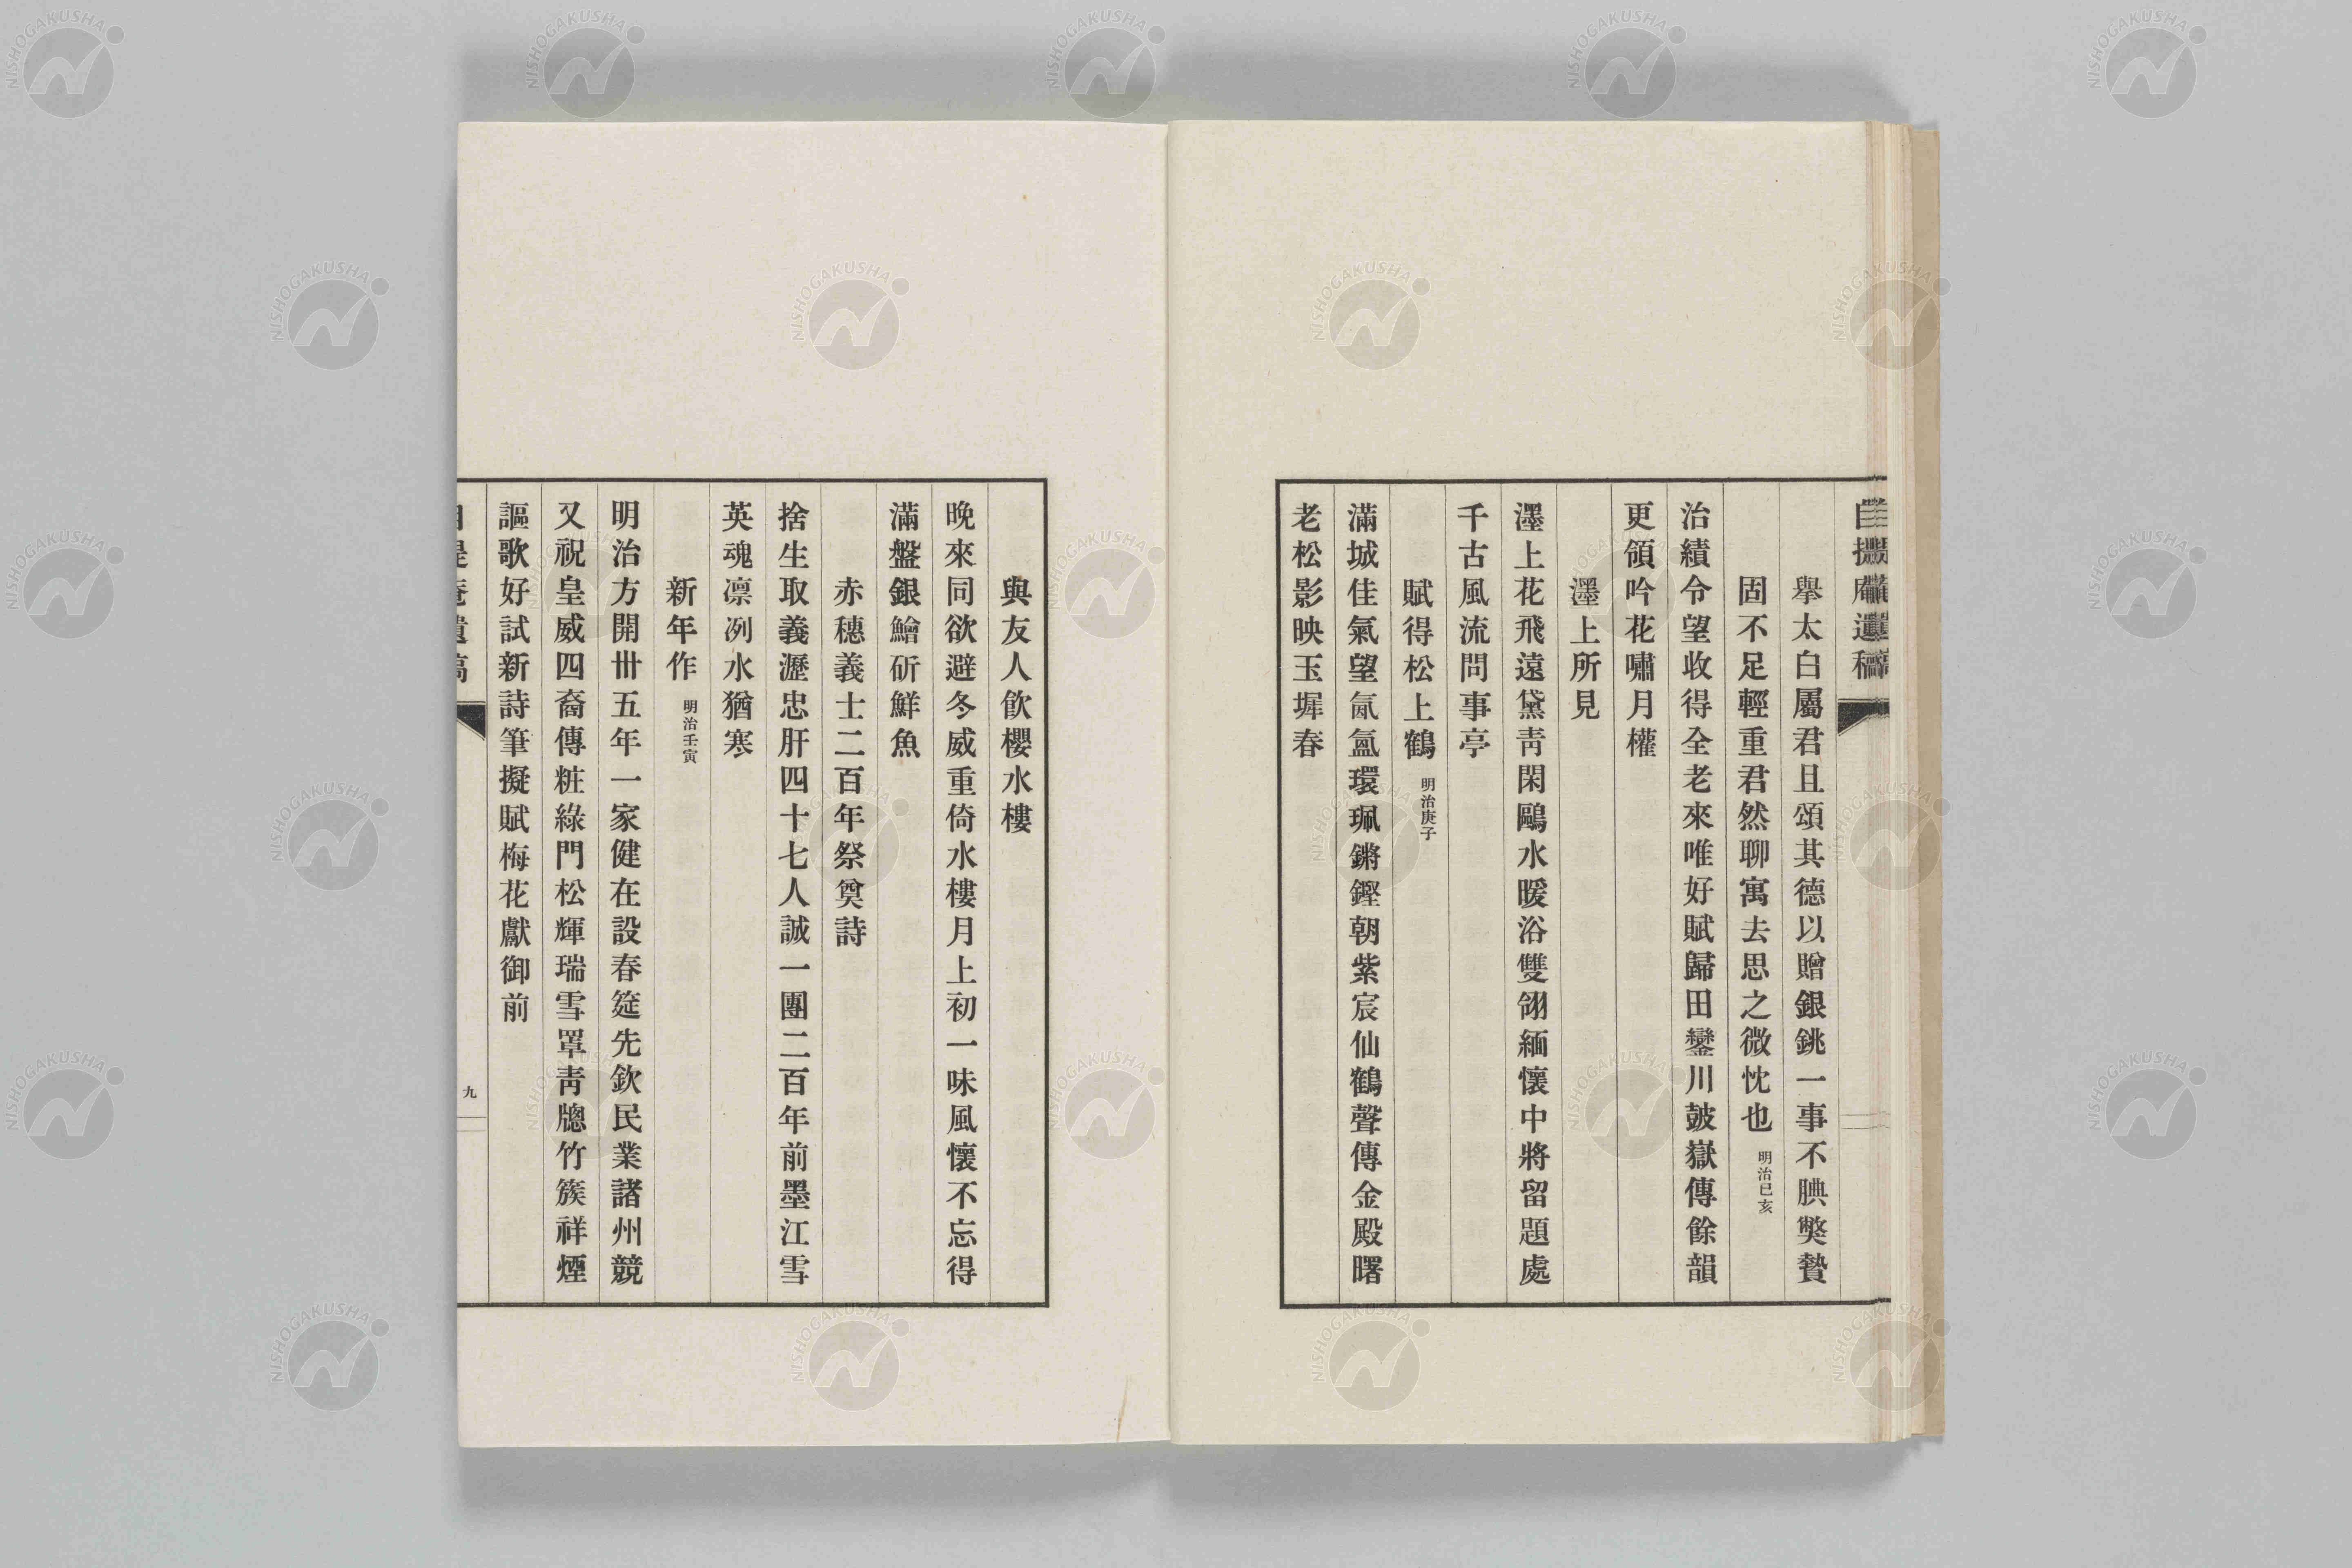 舉太白屬君且頌其德以贈銀銚一事不腆獘贄
固不足輕重君然聊寓去思之微忱也 明治己亥
治績令望收得全老來唯好賦歸田鑾川皷嶽傳餘韻
更領吟花嘯月權
澤上所見
澤上花飛遠黛靑閑鷗水暖浴雙翎緬懷中將留題處
千古風流問事亭
賦得松上鶴 明治庚子
滿城佳氣望氤氳環珮鏘鏗朝紫宸仙鶴聲傳金殿曙
老松影映玉墀春
與友人飮櫻水樓
晚來同欲避冬威重倚水樓月上初一味風懷不忘得
滿盤銀鱠斫鮮魚
赤穗義士二百年祭奠詩
捨生取義瀝忠肝四十七人誠一團二百年前墨江雪
英魂凛冽水猶寒
新年作 明治壬寅
明治方開卅五年一家健在設春筵先欽民業諸州競
又祝皇威四裔傳粧綠門松輝瑞雪罩靑牕竹簇祥煙
謳歌好試新詩筆擬賦梅花獻御前
九
NISHOGAKUSHA